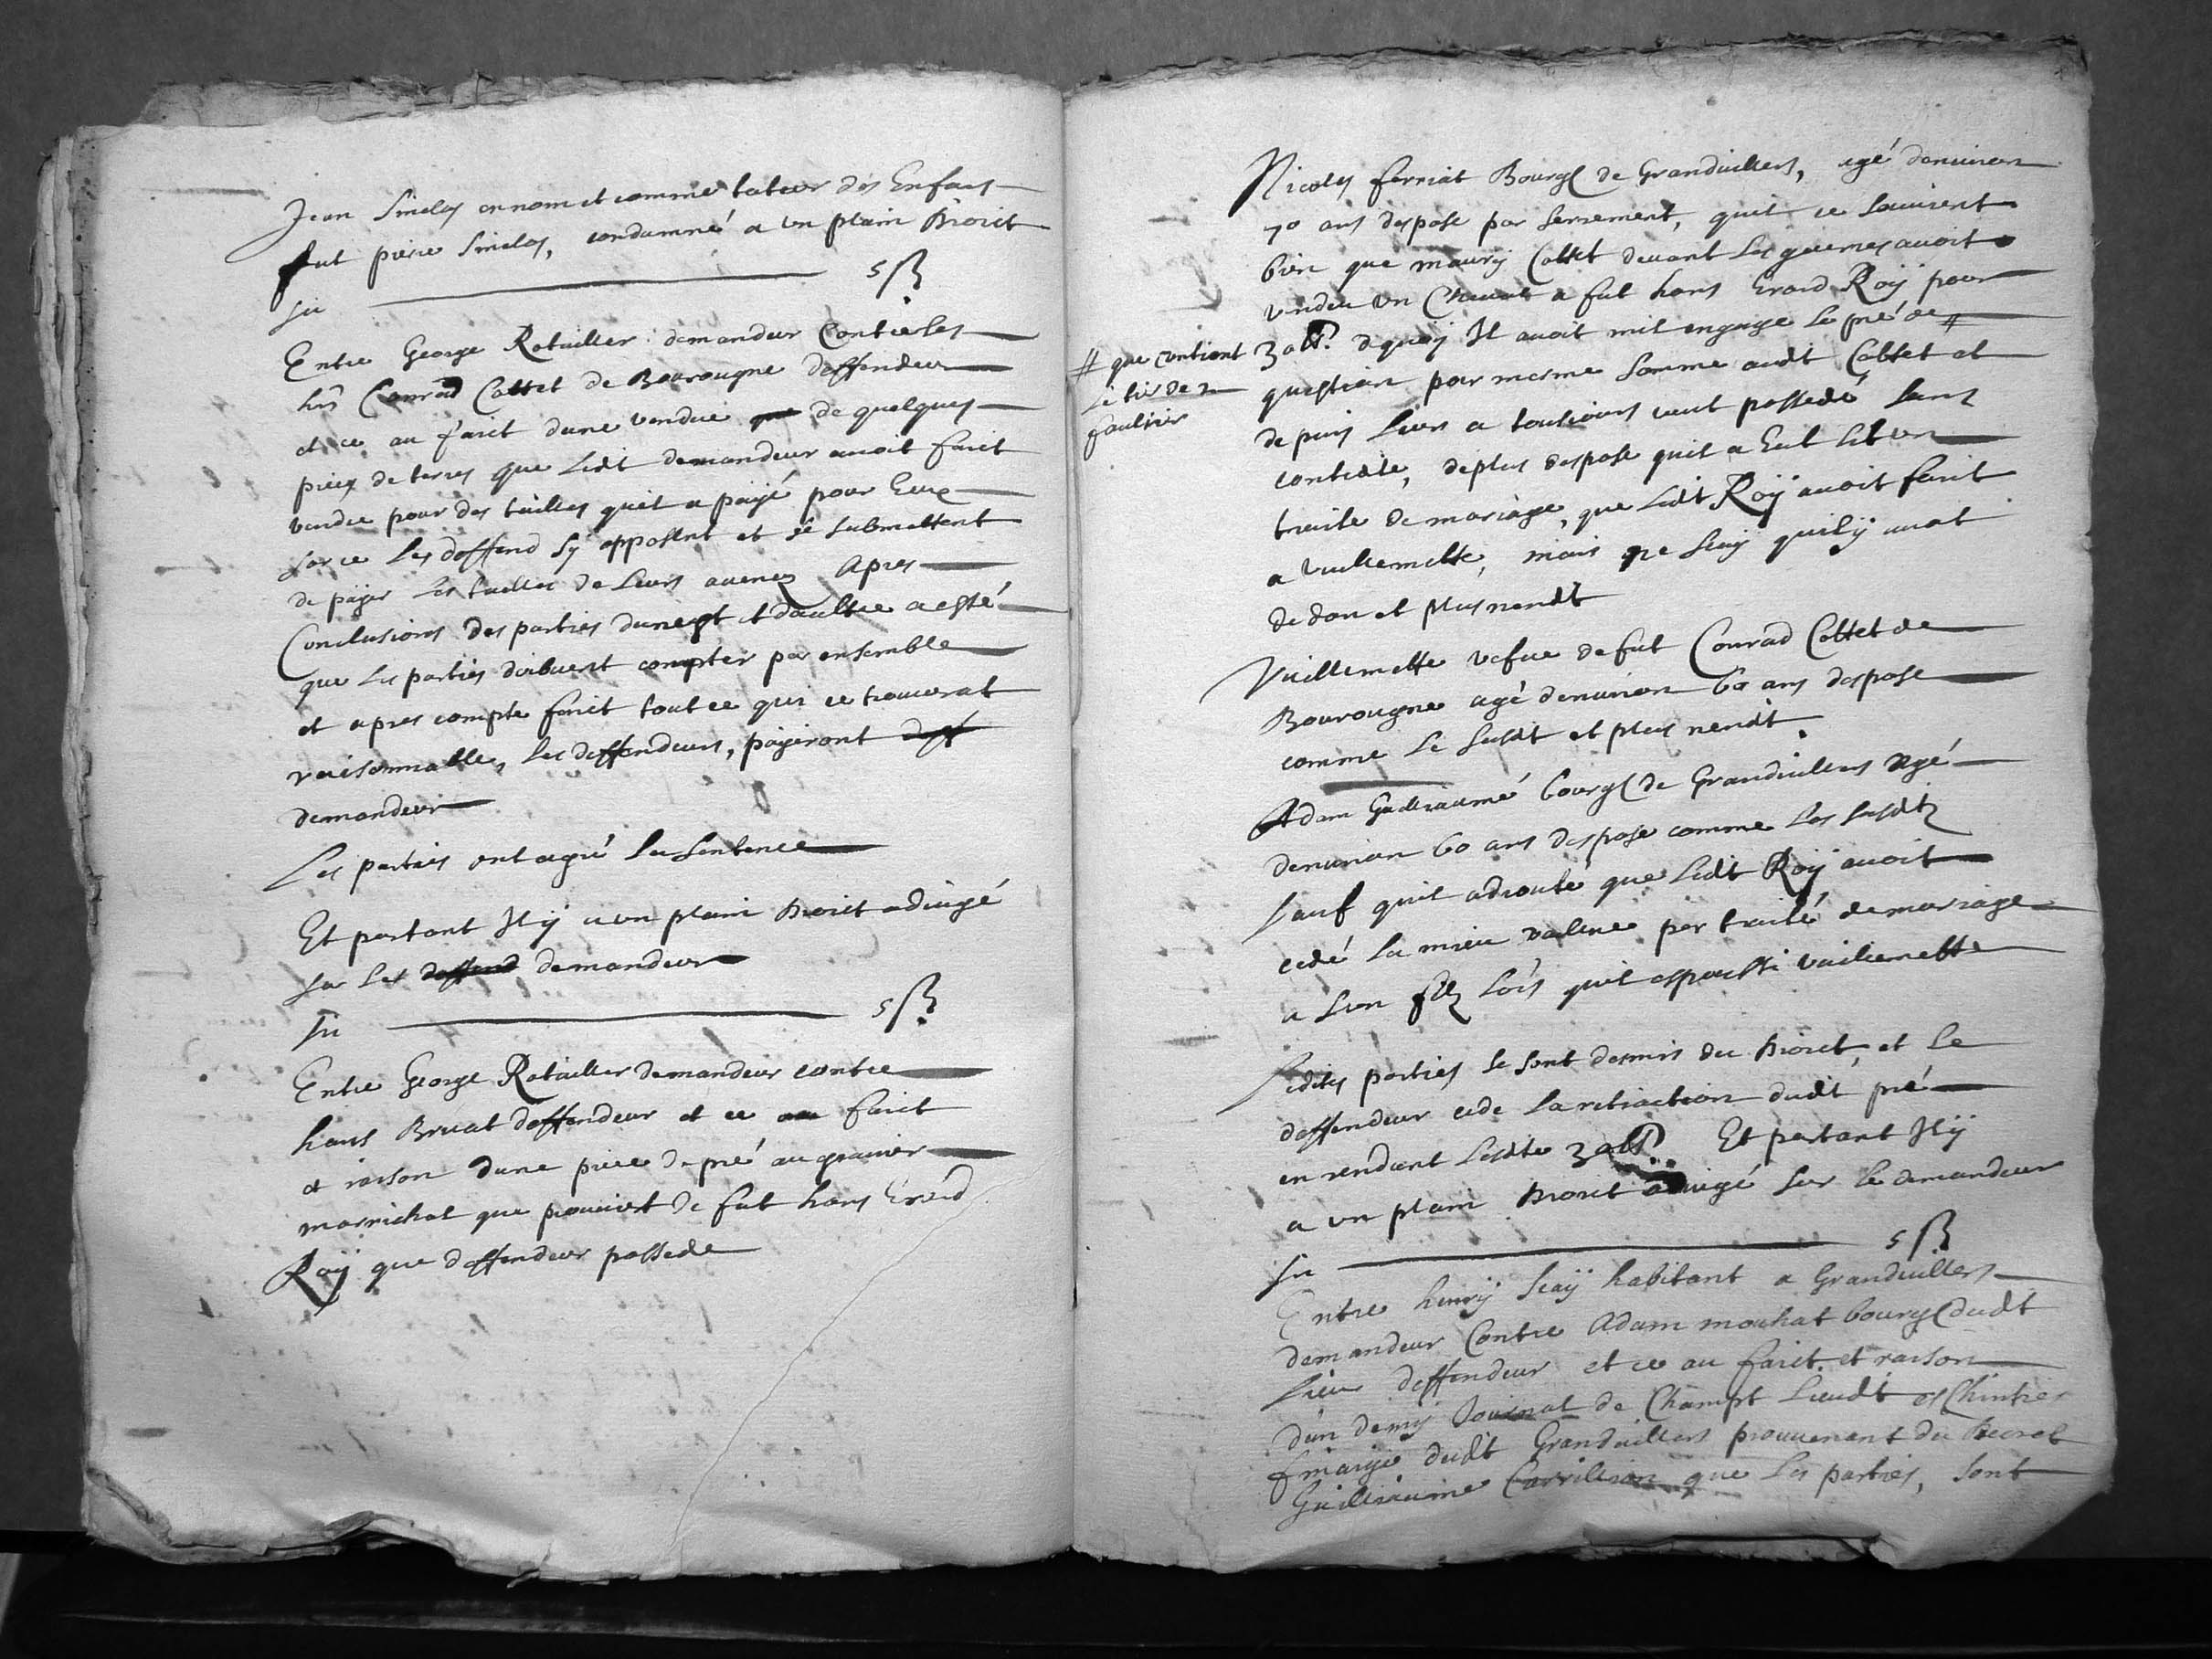 Jean Sinclas en nom et comme tuteur des Enfans
fut pierre Sinclas, condamné a un plain droict
Su 5 ß
Entre George Rotailler demandeur Contre les
hrs Conrad Cottet de Bourougne deffendeur
et ce au faict dune vendue de quelques
pieces de terres que ledt demandeur auoit faict
vendre pour des tailles quil a paÿé pour Eux
sur ce les deffend sÿ opposent et se submettent
de paÿer les tailles de leurs Apres
Conclusions des parties dunept et daultre a esté
que les parties doibuent compter par ensemble
et apres compte faict tout ce qui ce trouuerat
raisonnable, les deffendeurs, paÿeront
demandeur
Les parties ont agrée la Sentence
Et partant Il ÿ a un plain droict adiugé
sur les deffend demandeur
Su 5 ß
Entre George Rotailler demandeur contre
hans Bruat deffendeur et ce au faict
et raison dune piece de pré au grauier
marrichat que prouuient de fut hans Erard
Roÿ que deffendeur possede
Nicolas ferriat Bourg de Granduillers, agé denuiron
70 ans depose par serrement, quil ce souuient
bien que maurÿ Cottet deuant les guerres auoit
vendu un Cheual a fut hans Erard Roÿ pour
30 ℔. dequoÿ Il auoit mit engage le pré de #
# que contient
le tier de 2
faultier
question pour mesme somme audt Cottet et
depuis leurs a tousiours veut possedé sans
contredite, deplus depose quil a Eut lit un
traite de mariage, que ledt Roÿ auoit faict
a vuillemette, mais ne scaÿ quil ÿ auoit
de don et plus nendt
Vuillemette vefue de fut Conrad Cottet de
Bourougne agé denuiron 60 ans depose
comme le susdt et plus nendt.
Adam Guilliaumé bourg de Granduillers Agé
denuiron 60 ans depose comme les susdts
sauf quil adiouté que ledt Roÿ auoit
cedé la mieu vallue par traité de mariage
a son filz lors quil espousst vuillemette
Lesdites parties se sont demis du droict, et le
deffendeur cede la retraction dudt pré
en rendant lesdte 30 ℔. Et partant Il ÿ
a un plain droict adiugé sur le demandeur
Su 5 ß
Entre henrÿ scaÿ habitant a Granduillers
demandeur Contre Adam mouhat bourg dudt
lieu deffendeur et ce au faict et raison
dun demÿ Journal de Champt Lieudt es Chintres
finaige dudt Granduillers prouuenant du
Guilliaume que les parties, sont